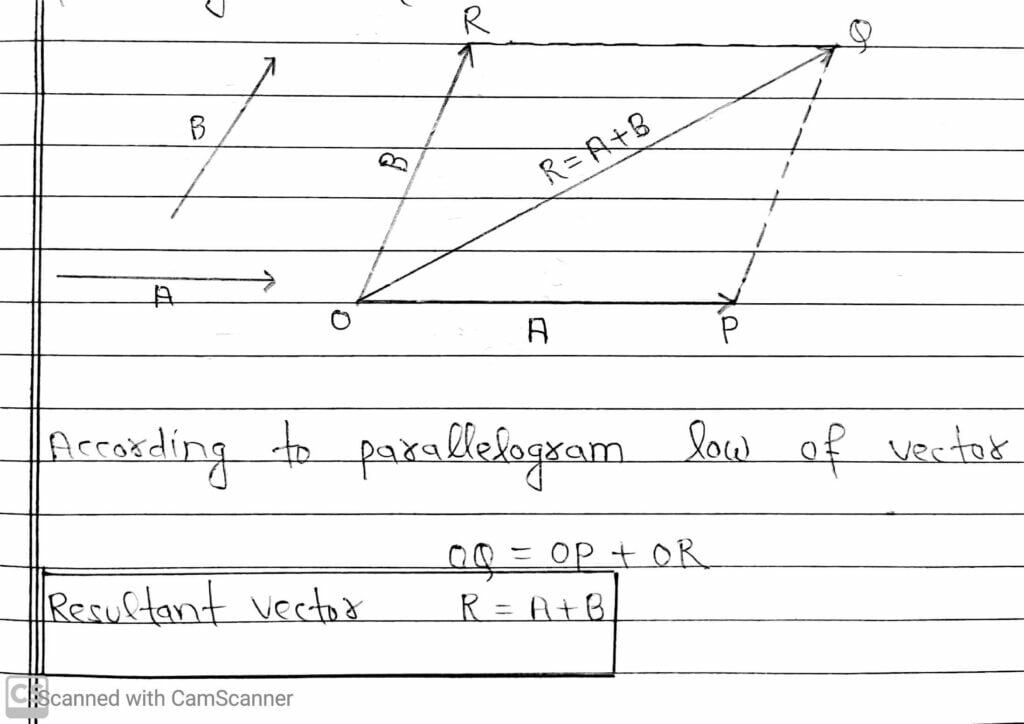 R
Q
B
B
R = A+B
A
O
A
P
According to parallelogram law of vector
OQ = OP + OR
Resultant vector R = A+B
CS Scanned with CamScanner